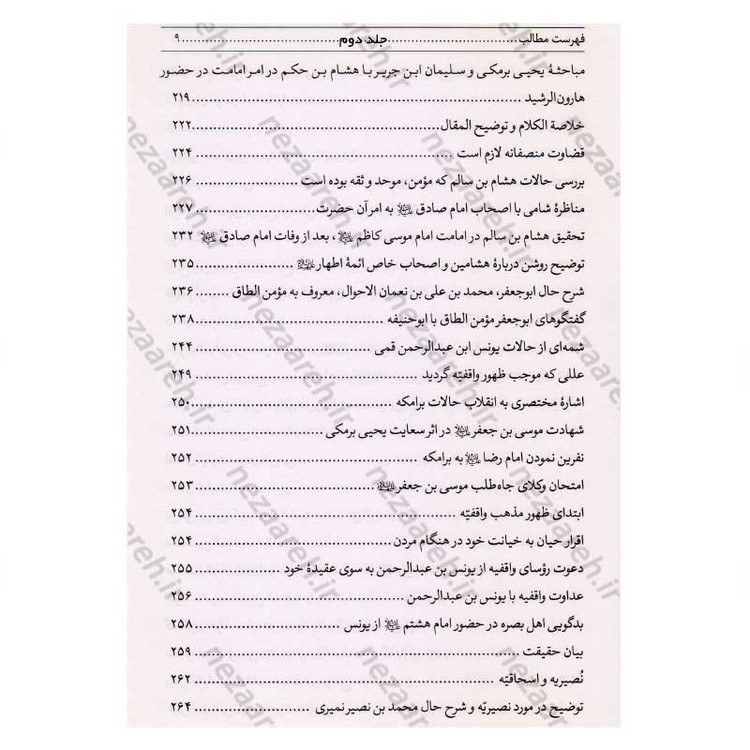 فهرست مطالب ........................ جلد دوم ........................ ۹
مباحثهٔ یحیی برمکی و سلیمان ابن جریر با هشام بن حکم در امر امامت در حضور
هارون‌الرشید ........................ ۲۱۹
خلاصة الکلام و توضیح المقال ........................ ۲۲۲
قضاوت منصفانه لازم است ........................ ۲۲۴
بررسی حالات هشام بن سالم که مؤمن، موحد و ثقه بوده است ........................ ۲۲۶
مناظرهٔ شامی با اصحاب امام صادق به امر آن حضرت ........................ ۲۲۷
تحقیق هشام بن سالم در امامت امام موسی کاظم ، بعد از وفات امام صادق ۲۳۲
توضیح روشن دربارهٔ هشامین و اصحاب خاص ائمهٔ اطهار ........................ ۲۳۵
شرح حال ابوجعفر، محمد بن علی بن نعمان الاحوال، معروف به مؤمن الطاق ........ ۲۳۶
گفتگوهای ابوجعفر مؤمن الطاق با ابوحنیفه ........................ ۲۳۸
شمه‌ای از حالات یونس ابن عبدالرحمن قمی ........................ ۲۴۴
عللی که موجب ظهور واقفیّه گردید ........................ ۲۴۹
اشارهٔ مختصری به انقلاب حالات برامکه ........................ ۲۵۰
شهادت موسی بن جعفر در اثر سعایت یحیی برمکی ........................ ۲۵۱
نفرین نمودن امام رضا به برامکه ........................ ۲۵۲
امتحان وکلای جاه‌طلب موسی بن جعفر ........................ ۲۵۳
ابتدای ظهور مذهب واقفیّه ........................ ۲۵۴
اقرار حیان به خیانت خود در هنگام مردن ........................ ۲۵۴
دعوت رؤسای واقفیه از یونس بن عبدالرحمن به سوی عقیدهٔ خود ........................ ۲۵۵
عداوت واقفیه با یونس بن عبدالرحمن ........................ ۲۵۶
بدگویی اهل بصره در حضور امام هشتم از یونس ........................ ۲۵۸
بیان حقیقت ........................ ۲۵۹
نُصیریه و اسحاقیّه ........................ ۲۶۲
توضیح در مورد نصیریّه و شرح حال محمد بن نصیر نمیری ........................ ۲۶۴
nezaareh.ir